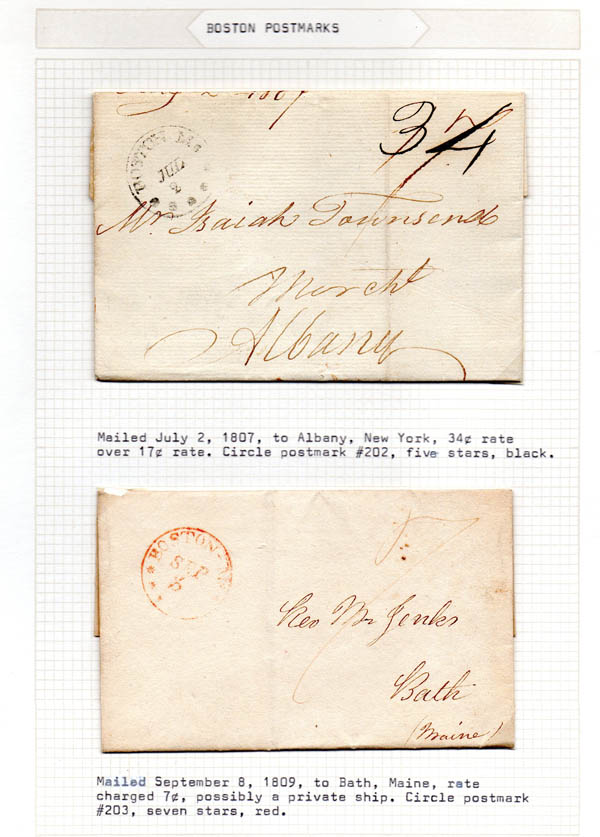 BOSTON POSTMARKS
July 2 1807
34
17
BOSTON MS
JUL
2
Mr. Isaiah Townsend
Mercht
Albany
Mailed July 2, 1807, to Albany, New York, 34¢ rate
over 17¢ rate. Circle postmark #202, five stars, black.
BOSTON MS
SEP
7
Rev Mr Jenks
Bath
(Maine)
Mailed September 8, 1809, to Bath, Maine, rate
charged 7¢, possibly a private ship. Circle postmark
#203, seven stars, red.